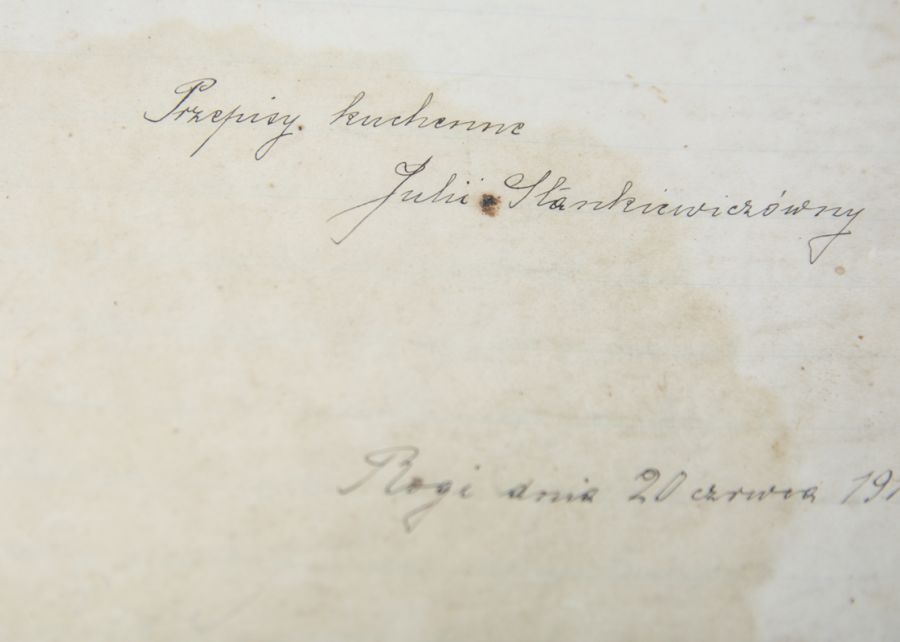 Przepisy kuchenne
Julii Stankiewiczówny
Rogi dnia 20 czerwca 191